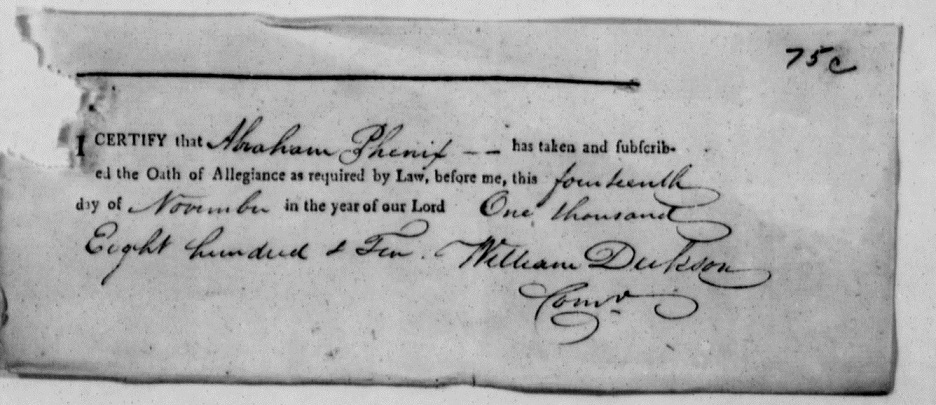 75c
I CERTIFY that Abraham Phenix -- has taken and ſubſcrib-
ed the Oath of Allegiance as required by Law, before me, this fourteenth
day of November in the year of our Lord One thousand
Eight hundred & Ten. William Dickson
Comr.